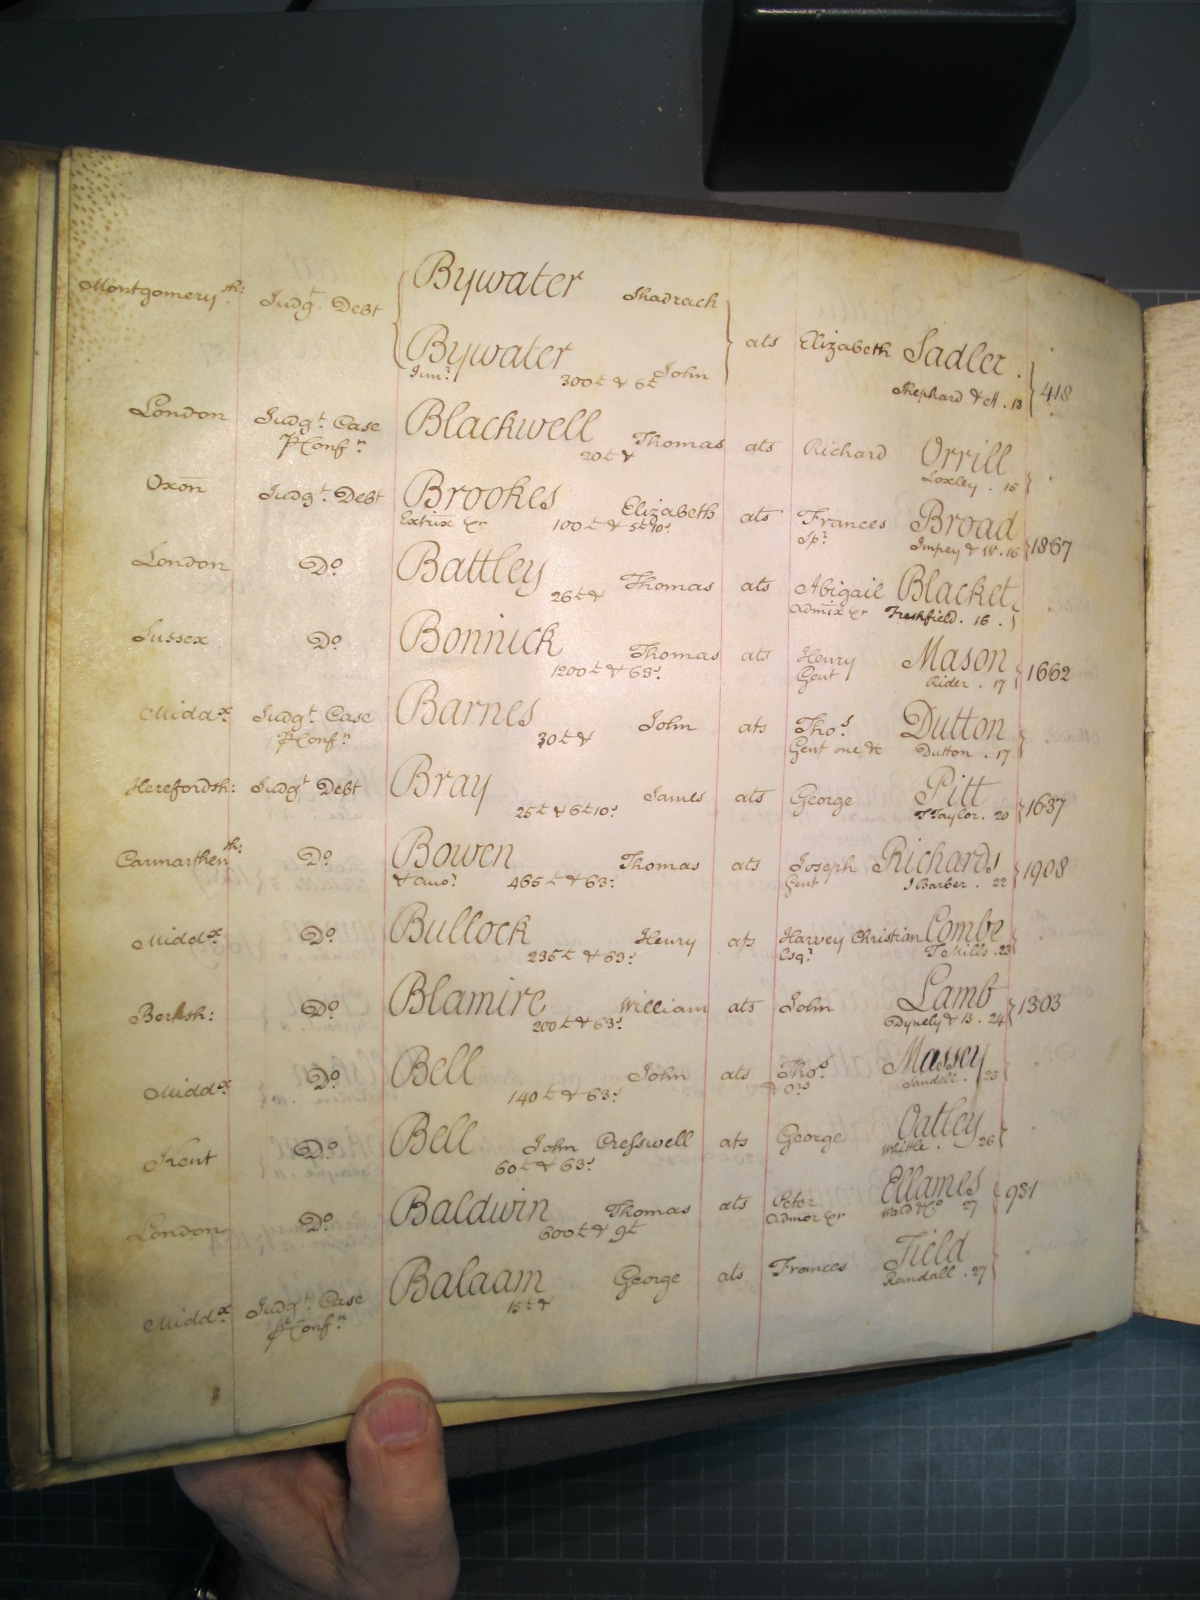 Montgomery sh: Judgt. Debt Bywater Shadrach
Bywater John ats Elizabeth Sadler.
Junr. 300£ & 6£ Shephard & A. 13 } 418
London Judgt. Case Blackwell Thomas ats Richard Orrill
P Confn. 20£ & Loxley. 15
Oxon Judgt. Debt Brookes Elizabeth ats Frances Broad
Extrix &r 100£ & 5£10s Spr. Impey & W. 16 } 1867
London Do. Battley Thomas ats Abigail Blacket
26£ & Admix &r Freshfield. 16.
Sussex Do. Bonnick Thomas ats Henry Mason
1200£ & 63s. Gent Rider. 17 } 1662
Middx. Judgt. Case Barnes John ats Thos. Dutton
P Confn. 30£ & Gent one &c Dutton. 17
Herefordsh: Judgt Debt Bray James ats George Pitt
25£ & 6£10s. T Taylor. 20 } 1637
Carmarthen sh: Do. Bowen Thomas ats Joseph Richards
& anor. 465£ & 63s. Gent J Barber. 22 } 1908
Middx. Do. Bullock Henry ats Harvey Christian Combe
235£ & 63s. Esqr. T Mills. 23
Berksh: Do. Blamire William ats John Lamb
200£ & 63s. Dynely & B. 24 } 1303
Middx. Do. Bell John ats Thos. Massey
140£ & 63s. & ors Sandell. 25
Kent Do. Bell John Cresswell ats George Oatley
60£ & 63s. Whittle. 26
London Do. Baldwin Thomas ats Peter Ellames
600£ & 9£ Admor &r Wald & Co 27 } 931
Middx. Judgt. Case Balaam George ats Frances Field
P Confn. 15£ & Randall. 27